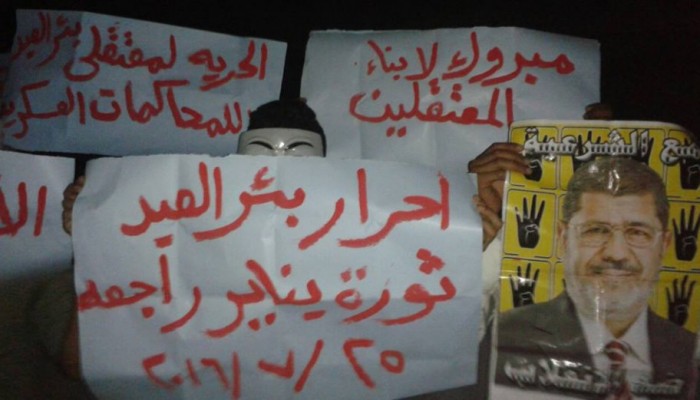 الحريه لمعتقلى بئر العبد
للمحاكمات العسكرية
مبروك لابناء
المعتقلين
احرار بئر العبد
ثورة يناير راجعه
٢٥/٧/٢٠١٦
مع الشرعية